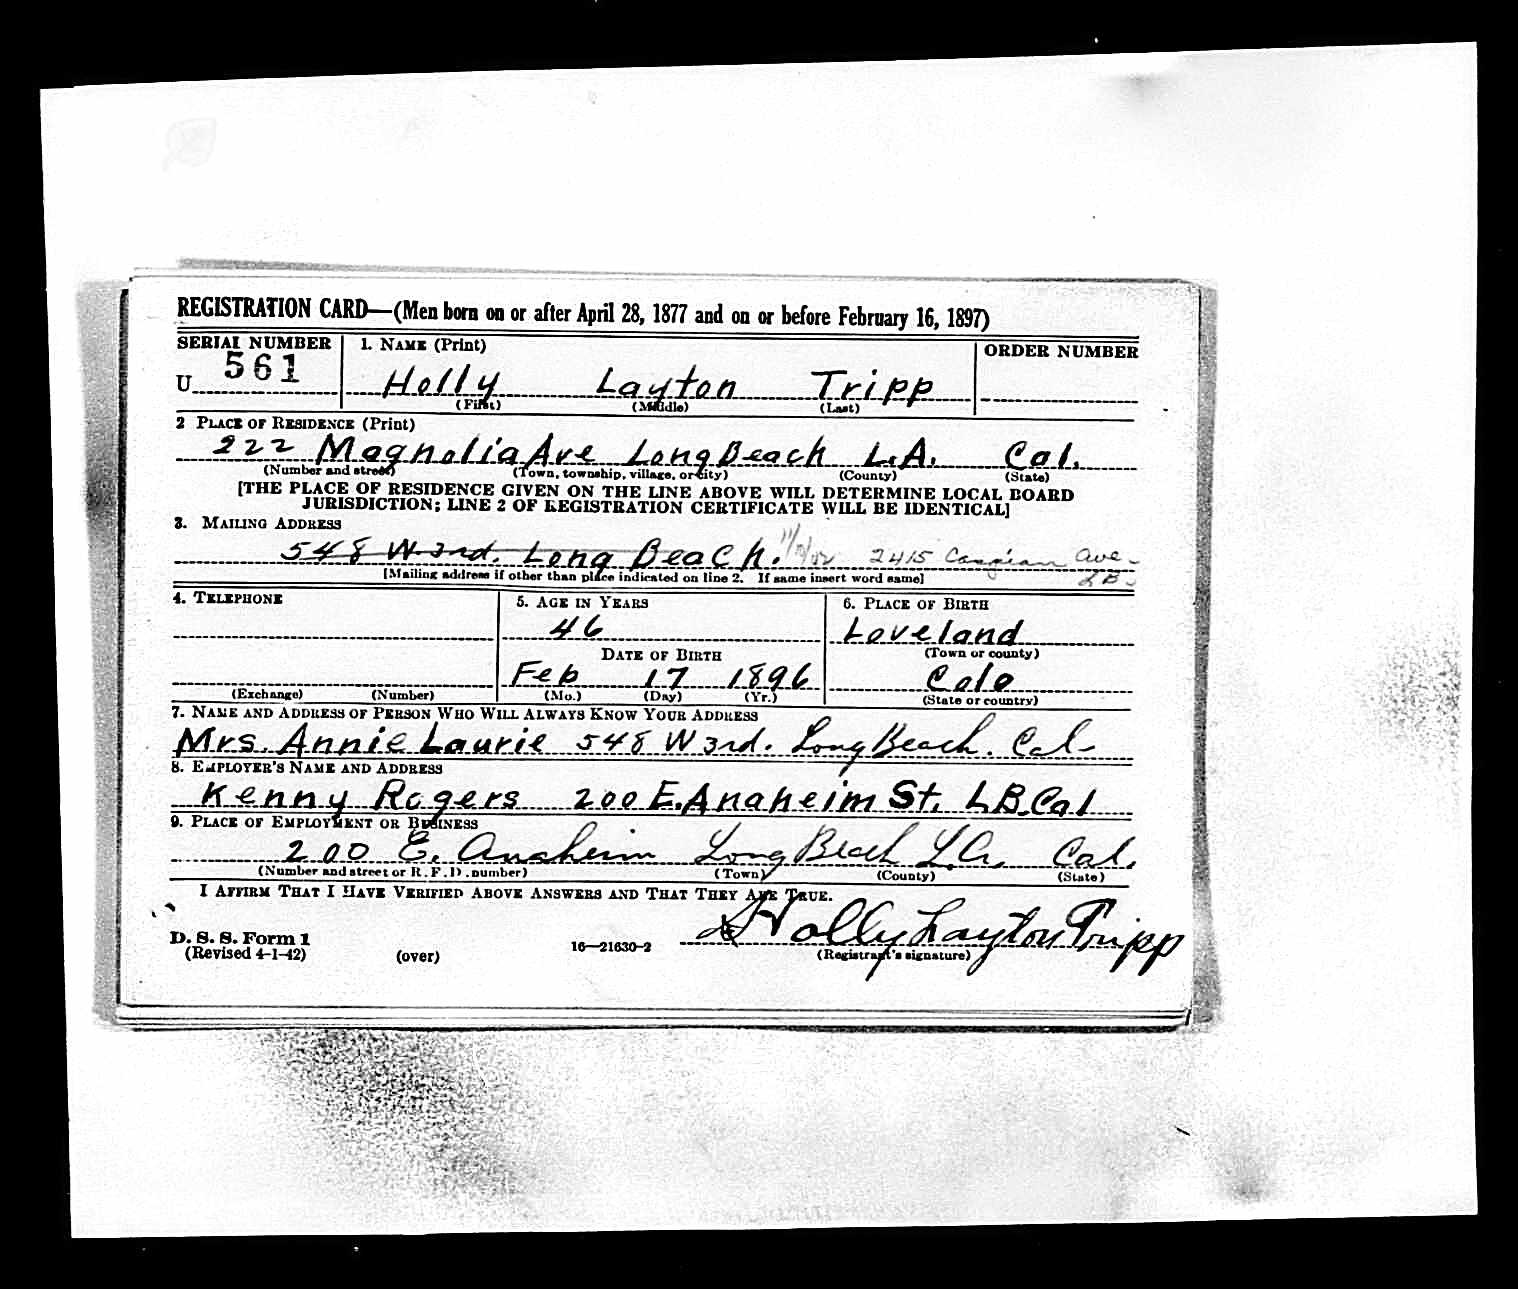 REGISTRATION CARD—(Men born on or after April 28, 1877 and on or before February 16, 1897)
SERIAL NUMBER 1. NAME (Print) ORDER NUMBER
U 561 Holly Layton Tripp
(First) (Middle) (Last)
2 PLACE OF RESIDENCE (Print)
222 Magnolia Ave Long Beach L.A. Cal.
(Number and street) (Town, township, village, or city) (County) (State)
[THE PLACE OF RESIDENCE GIVEN ON THE LINE ABOVE WILL DETERMINE LOCAL BOARD
JURISDICTION; LINE 2 OF REGISTRATION CERTIFICATE WILL BE IDENTICAL]
3. MAILING ADDRESS
548 W 3rd. Long Beach. 2415 Ave-
LB-
[Mailing address if other than place indicated on line 2. If same insert word same]
4. TELEPHONE 5. AGE IN YEARS 6. PLACE OF BIRTH
46 Loveland
DATE OF BIRTH (Town or county)
Feb 17 1896 Colo
(Exchange) (Number) (Mo.) (Day) (Yr.) (State or country)
7. NAME AND ADDRESS OF PERSON WHO WILL ALWAYS KNOW YOUR ADDRESS
Mrs. Annie Laurie 548 W 3rd. Long Beach. Cal-
8. EMPLOYER'S NAME AND ADDRESS
Kenny Rogers 200 E. Anaheim St. L.B. Cal
9. PLACE OF EMPLOYMENT OR BUSINESS
200 E. Anaheim Long Beach L.A. Cal.
(Number and street or R. F. D. number) (Town) (County) (State)
I AFFIRM THAT I HAVE VERIFIED ABOVE ANSWERS AND THAT THEY ARE TRUE.
Holly Layton Tripp
D. S. S. Form 1
(Revised 4-1-42) (over) 16—21630-2 (Registrant's signature)